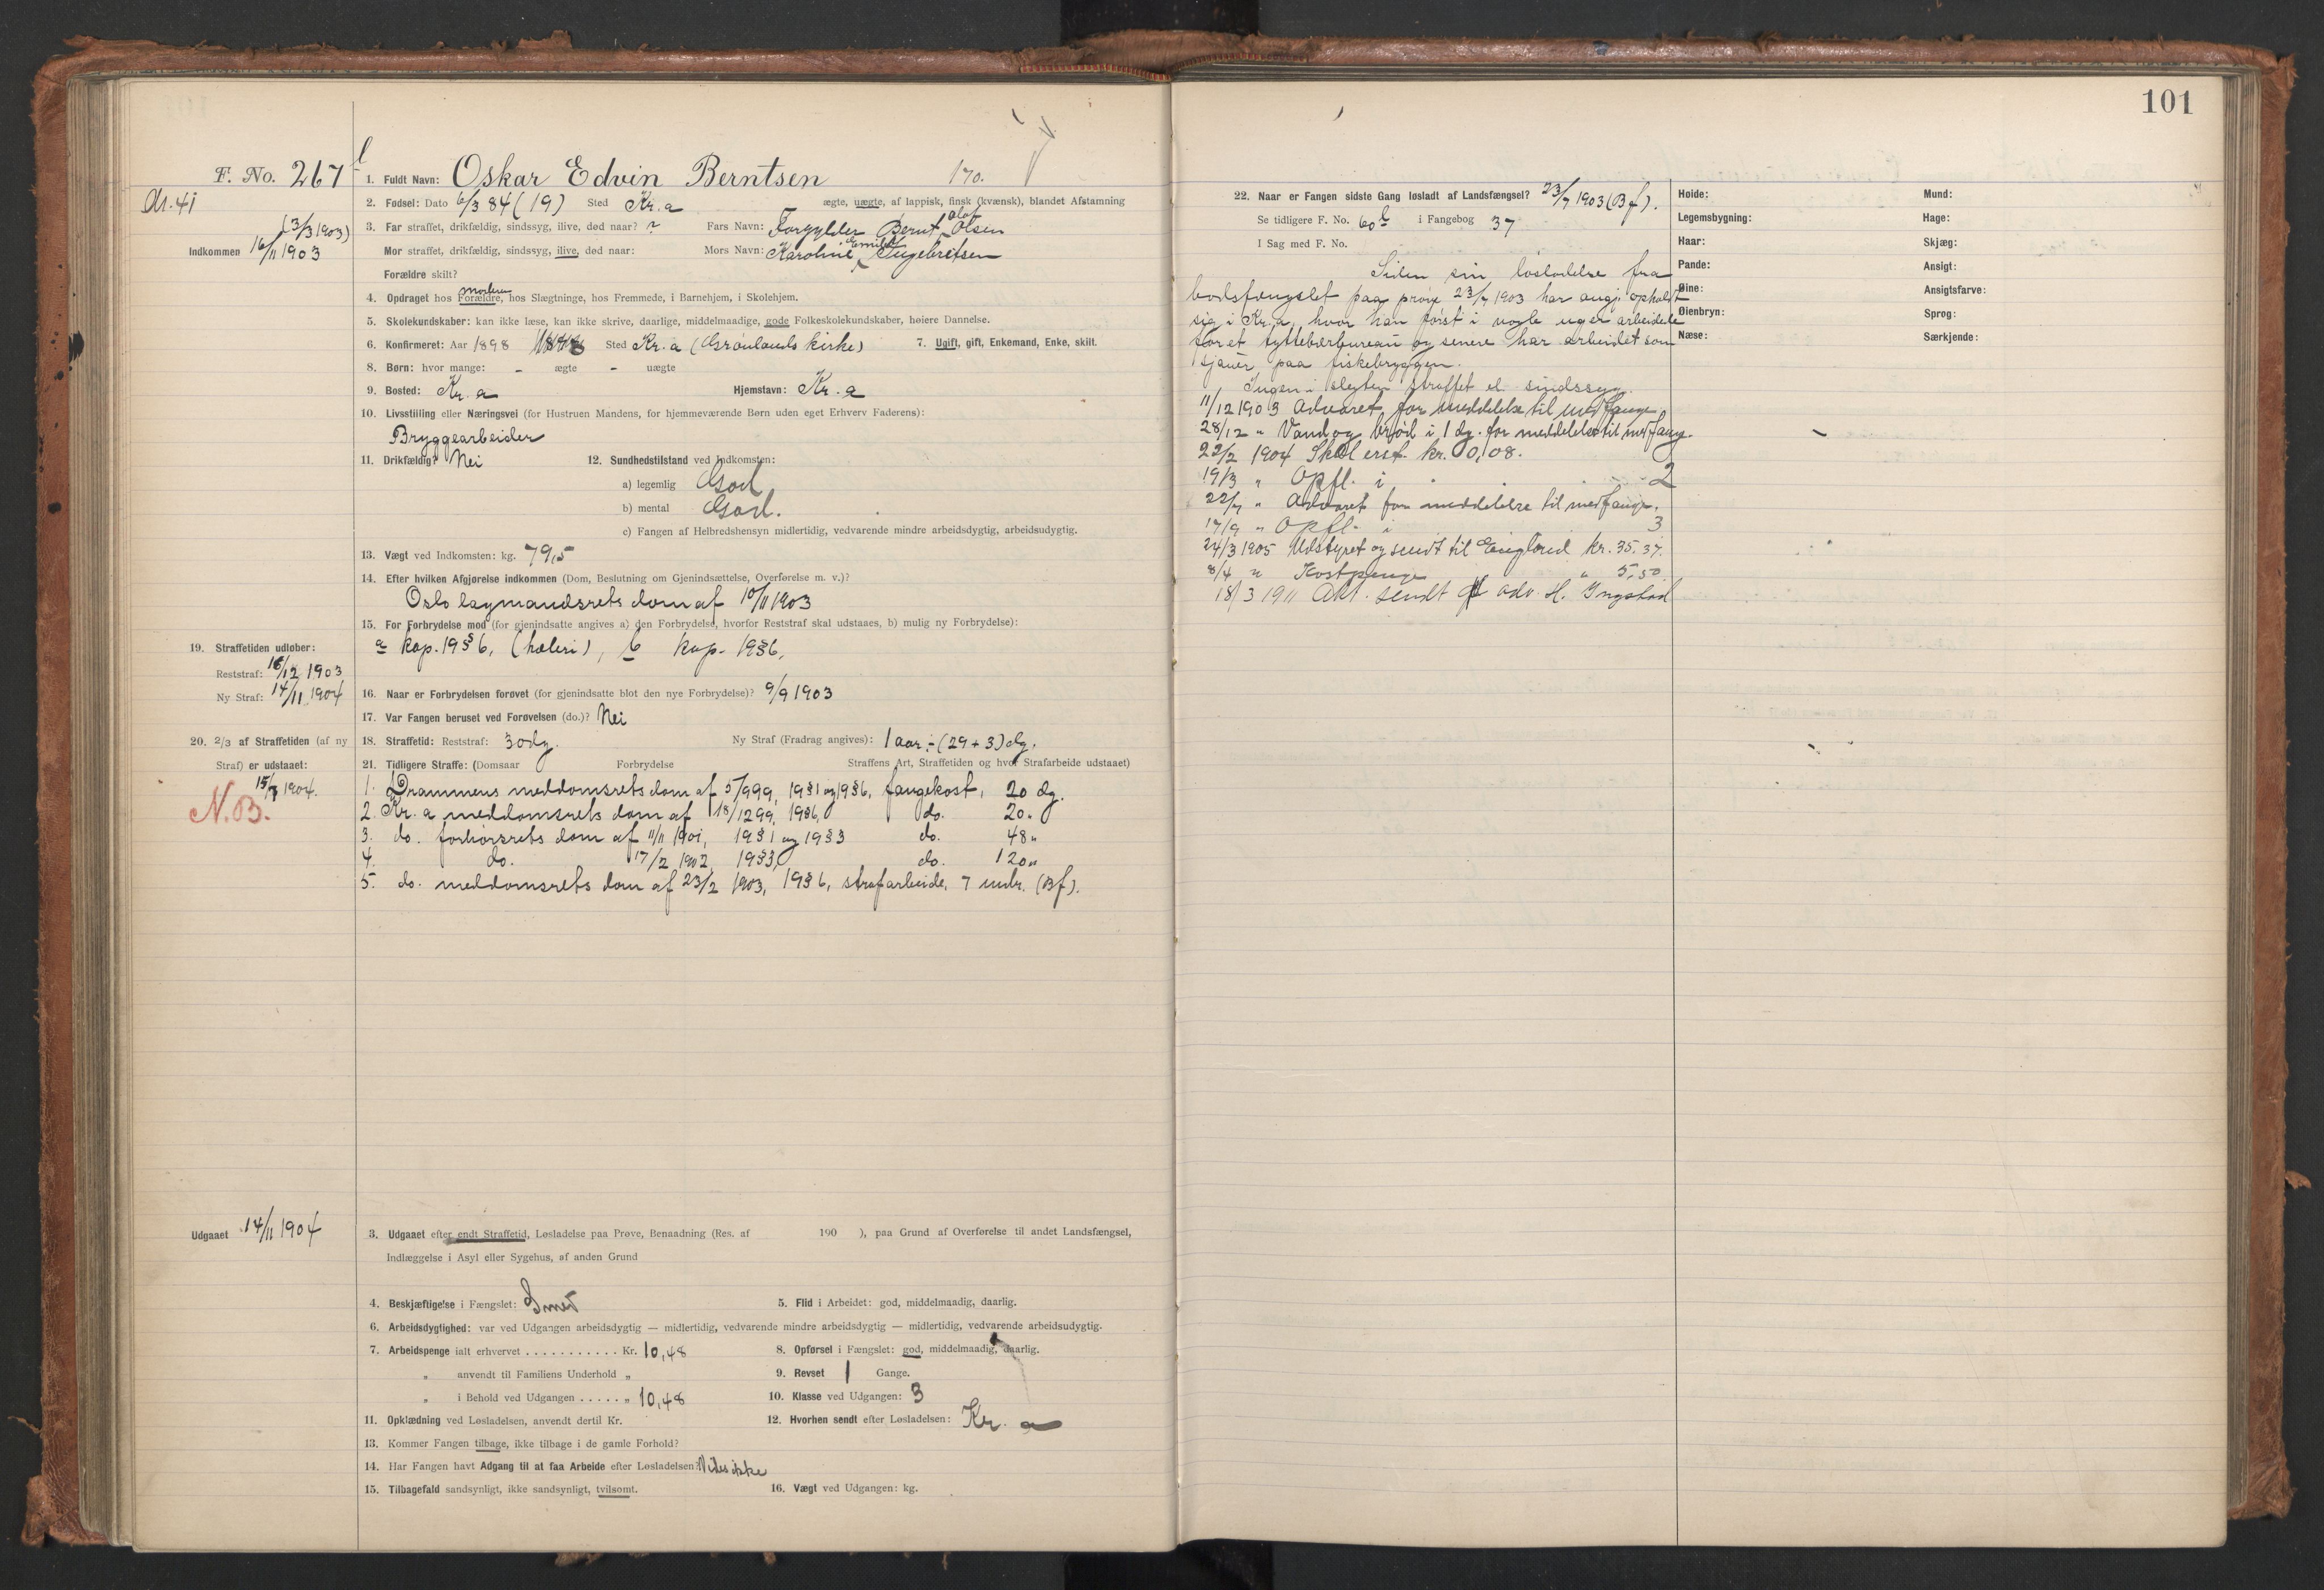 101
F. No. 267 b
1. Fuldt Navn: Oskar Edvin Berntsen 170.
2. Fødsel: Dato 6/3 84 (19) Sted Kr.a ægte, uægte, af lappisk, finsk (kvænsk), blandet Afstamning
(3/3 1903)
3. Far straffet, drikfældig, sindssyg, ilive, død naar? ? Fars Navn: Forgylder Bernt Olaf Olsen
Indkommen 16/11 1903
Mor straffet, drikfældig, sindssyg, ilive, død naar: Mors Navn: Karoline Emilie Ingebretsen
Forældre skilt?
4. Opdraget hos Forældre, moderen hos Slægtninge, hos Fremmede, i Barnehjem, i Skolehjem.
5. Skolekundskaber: kan ikke læse, kan ikke skrive, daarlige, middelmaadige, gode Folkeskolekundskaber, høiere Dannelse.
6. Konfirmeret: Aar 1898 Sted Kr.a (Grønlands kirke) 7. Ugift, gift, Enkemand, Enke, skilt.
8. Børn: hvor mange: - ægte - uægte
9. Bosted: Kr.a Hjemstavn: Kr.a
10. Livsstilling eller Næringsvei (for Hustruen Mandens, for hjemmeværende Børn uden eget Erhverv Faderens):
Bryggearbeider
11. Drikfældig? Nei 12. Sundhedstilstand ved Indkomsten:
a) legemlig God
b) mental God.
c) Fangen af Helbredshensyn midlertidig, vedvarende mindre arbeidsdygtig, arbeidsudygtig.
13. Vægt ved Indkomsten: kg. 79,5
14. Efter hvilken Afgjørelse indkommen (Dom, Beslutning om Gjenindsættelse, Overførelse m. v.)?
Oslo lagmandsrets dom af 10/11 1903
15. For Forbrydelse mod (for gjenindsatte angives a) den Forbrydelse, hvorfor Reststraf skal udstaaes, b) mulig ny Forbrydelse):
a kap. 19 § 6, (hæleri), b kap. 19 § 6,
19. Straffetiden udløber:
Reststraf: 16/12 1903
Ny Straf: 14/11 1904
16. Naar er Forbrydelsen forøvet (for gjenindsatte blot den nye Forbrydelse)? 9/9 1903
17. Var Fangen beruset ved Forøvelsen (do.)? Nei
20. 2/3 af Straffetiden (af ny Straf) er udstaaet:
15/7 1904.
N.B.
18. Straffetid: Reststraf: 30 dg. Ny Straf (Fradrag angives): 1 aar ÷ (29 + 3) dg.
21. Tidligere Straffe: (Domsaar Forbrydelse Straffens Art, Straffetiden og hvor Strafarbeide udstaaet)
1. Drammens meddomsrets dom af 5/9 99, 19 § 1 og 19 § 6, fangekost, 20 dg.
2. Kr.a meddomsrets dom af 18/12 99, 19 § 6, do. 20 "
3. do. forhørsrets dom af 11/11 1901, 19 § 1 og 19 § 3 do. 48 "
4. do. 17/2 1902, 19 § 3, do. 120 "
5. do. meddomsrets dom af 23/2 1903, 19 § 6, strafarbeide, 7 mdr. (Bf).
Udgaaet 14/11 1904
3. Udgaaet efter endt Straffetid, Løsladelse paa Prøve, Benaadning (Res. af 190 ), paa Grund af Overførelse til andet Landsfængsel,
Indlæggelse i Asyl eller Sygehus, af anden Grund
4. Beskjæftigelse i Fængslet: Smed 5. Flid i Arbeidet: god, middelmaadig, daarlig.
6. Arbeidsdygtighed: var ved Udgangen arbeidsdygtig — midlertidig, vedvarende mindre arbeidsdygtig — midlertidig, vedvarende arbeidsudygtig.
7. Arbeidspenge ialt erhvervet . . . . . . . . . . . Kr. 10,48 8. Opførsel i Fængslet: god, middelmaadig, daarlig.
" anvendt til Familiens Underhold " 9. Revset 1 Gange.
" i Behold ved Udgangen . . . . . " 10,48 10. Klasse ved Udgangen: 3
11. Opklædning ved Løsladelsen, anvendt dertil Kr. 12. Hvorhen sendt efter Løsladelsen: Kr.a
13. Kommer Fangen tilbage, ikke tilbage i de gamle Forhold?
14. Har Fangen havt Adgang til at faa Arbeide efter Løsladelsen? Vides ikke
15. Tilbagefald sandsynligt, ikke sandsynligt, tvilsomt. 16. Vægt ved Udgangen: kg.
22. Naar er Fangen sidste Gang løsladt af Landsfængsel? 23/7 1903 (Bf).
Se tidligere F. No. 60 b i Fangebog 37
I Sag med F. No.
Siden sin løsladelse fra
bodsfængslet paa prøve 23/7 1903 har angj. opholdt
sig i Kr.a, hvor han først i nogle uger arbeidede
for et flyttebærbureau og senere har arbeidet som
sjauer paa fiskebryggen.
Ingen i slegten straffet el. sindssyg.
11/12 1903 Advaret for meddelelse til medfange
28/12 " Vand og brød i 1 dg. for meddelelse til medfange.
22/2 1904 Skol erst. kr. 0,08.
19/3 " Opfl. i 2
22/7 " Advaret for meddelelse til medfange.
17/9 " Opfl. i 3
24/3 1905 Udstyret og sendt til England kr. 35.37.
8/4 " Kostpenge " 5,50
18/3 1911 Akt. sendt adv. H. Ingstad
Høide:
Legemsbygning:
Haar:
Pande:
Øine:
Øienbryn:
Næse:
Mund:
Hage:
Skjæg:
Ansigt:
Ansigtsfarve:
Sprog:
Særkjende: